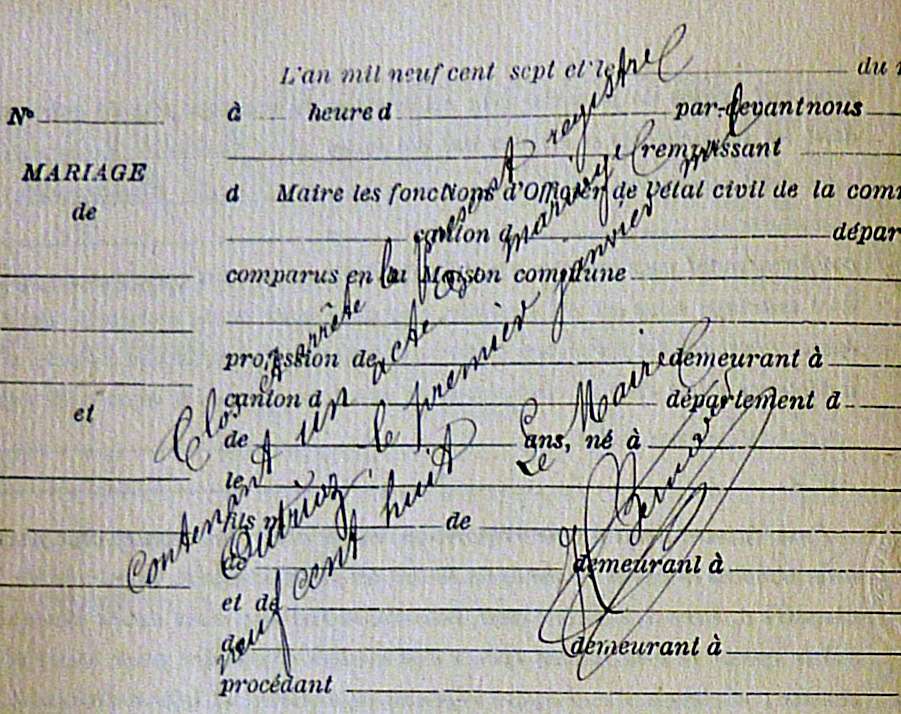 L'an mil neuf cent sept et le du
Nº à heure d par-devant nous
remplissant
MARIAGE
d Maire les fonctions d'Officier de l'état civil de la com
de
canton d dépar
comparus en la Maison commune
profession de demeurant à
canton d département d
et
de ans, né à
le
fils de
de demeurant à
et de
d demeurant à
procédant
Clos et arrêté le présent registre
contenant un acte de mariage
le premier janvier mil
neuf cent huit
Le Maire